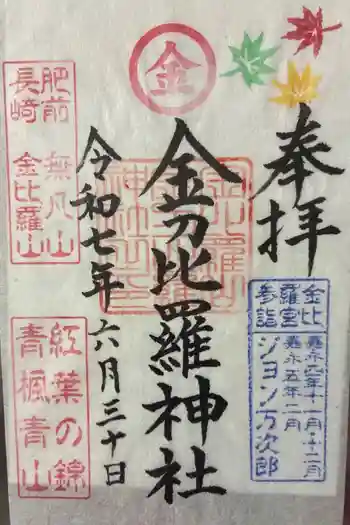 奉拝
金比
羅宮
参詣
嘉永四年十一月・十二月
嘉永五年二月
ジョン万次郎
金
金刀比羅神社
令和七年六月三十日
肥前 無凡山
長崎 金比羅山
紅葉の錦
青楓青山